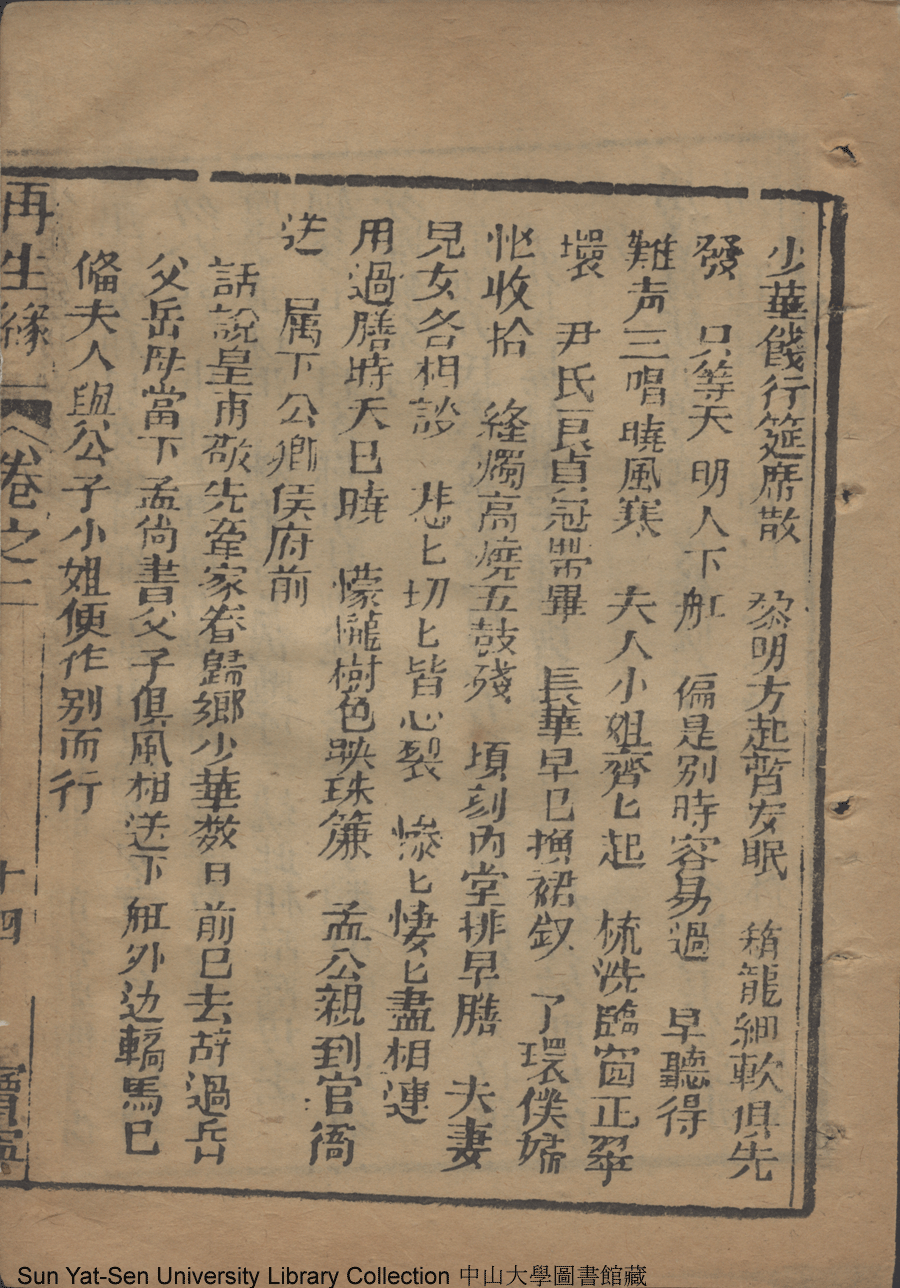 少華餞行筵席散 黎明方赴暫安眠 箱龍細軟俱先
發 只等天明人下舡 偏是別時容易過 早聽得
雞声三唱曉風寒 夫人小姐齊匕起 梳洗臨窗正翠
環 尹氏良貞冠帶畢 長華早已換裙釵 了環僕婦
忙收拾 絳燭高燒五鼓殘 頃刻內堂排早膳 夫妻
兒女各相談 悲匕切匕皆心裂 慘匕悽匕盡相連
用過膳時天已曉 懞朧樹色映珠簾 孟公親到官衙
送 属下公卿侯府前
話說皇甫敬先牽家眷歸鄉少華数日前已去辞過岳
父岳母當下孟尚書父子俱風相送下舡外边轎馬已
俻夫人與公子小姐便作別而行
再生緣 卷之二 十四 寶寧
Sun Yat-Sen University Library Collection 中山大學圖書館藏